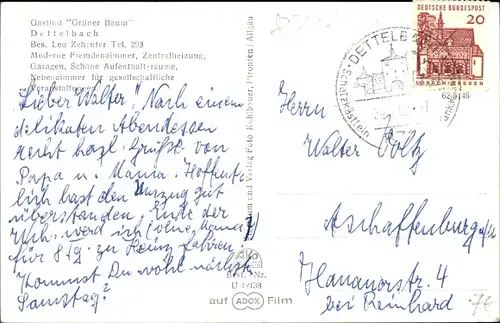 Gasthof "Grüner Baum"
Dettelbach
Bes. Leo Zehnter Tel. 293
Moderne Fremdenzimmer, Zentralheizung,
Garagen, Schöne Aufenthaltsräume,
Nebenzimmer für gesellschaftliche
Veranstaltungen
Lieber Walter! Nach einem
delikaten Abendessen
recht herzl. Grüße von
Papa u. Mama. Hoffent-
lich hast den Umzug gut
überstanden. Ende der
Wch. werd ich (ohne Mama)
für 8 Tg. zu Heinz fahren.
Kommst Du wohl nächst.
Samstag?
und Verlag Foto Kuhbauer, Pfronten / Allgäu
Best. Nr.
U 17138
auf ADOX Film
DETTELBACH
DEUTSCHE BUNDESPOST
20
LORSCH HESSEN
Herrn
Walter Voltz
Aschaffenburg
Hanauerstr. 4
bei Reinhard